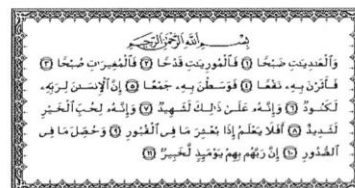 بِسْمِ اللَّهِ الرَّحْمَٰنِ الرَّحِيمِ
وَٱلْعَٰدِيَٰتِ ضَبْحًا ١ فَٱلْمُورِيَٰتِ قَدْحًا ٢ فَٱلْمُغِيرَٰتِ صُبْحًا ٣
فَأَثَرْنَ بِهِۦ نَقْعًا ٤ فَوَسَطْنَ بِهِۦ جَمْعًا ٥ إِنَّ ٱلْإِنسَٰنَ لِرَبِّهِۦ
لَكَنُودٌ ٦ وَإِنَّهُۥ عَلَىٰ ذَٰلِكَ لَشَهِيدٌ ٧ وَإِنَّهُۥ لِحُبِّ ٱلْخَيْرِ
لَشَدِيدٌ ٨ أَفَلَا يَعْلَمُ إِذَا بُعْثِرَ مَا فِى ٱلْقُبُورِ ٩ وَحُصِّلَ مَا فِى
ٱلصُّدُورِ ١٠ إِنَّ رَبَّهُم بِهِمْ يَوْمَئِذٍ لَّخَبِيرٌۢ ١١